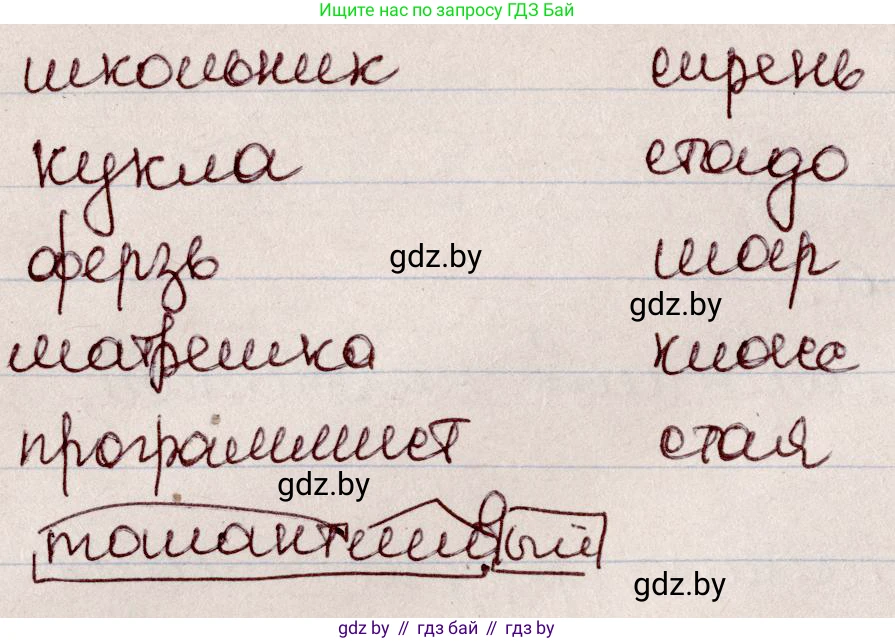 Ищите нас по запросу ГДЗ Бай
школьник сирень
кукла стадо
ферзь gdz.by шар
gdz.by
матрешка класс
программист стая
gdz.by
талантливый
gdz.by
gdz by // гдз бай // gdz by